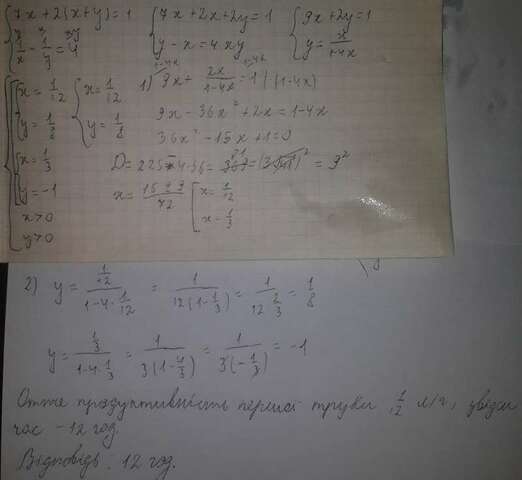 7x+2(x+y)=1
1/x - 1/y = 4
7x+2x+2y=1
y-x=4xy
9x+2y=1
y=x/(1-4x)
x=1/12
y=1/8
x=1/3
y=-1
x>0
y>0
x=1/12
y=1/8
1) 9x+ 2x/(1-4x) =1 | (1-4x)
9x-36x²+2x=1-4x
36x²-15x+1=0
D=225-4·36= = 9²
x= 72
x=1/12
x=1/3
2) y= (1/12)/(1-4·1/12) = 1/(12(1-1/3)) = 1/(12·2/3) = 1/8
y= (1/3)/(1-4·1/3) = 1/(3(1-4/3)) = 1/(3(-1/3)) = -1
Отже продуктивність першої труби 1/12
час -12 год.
Відповідь: 12 год.